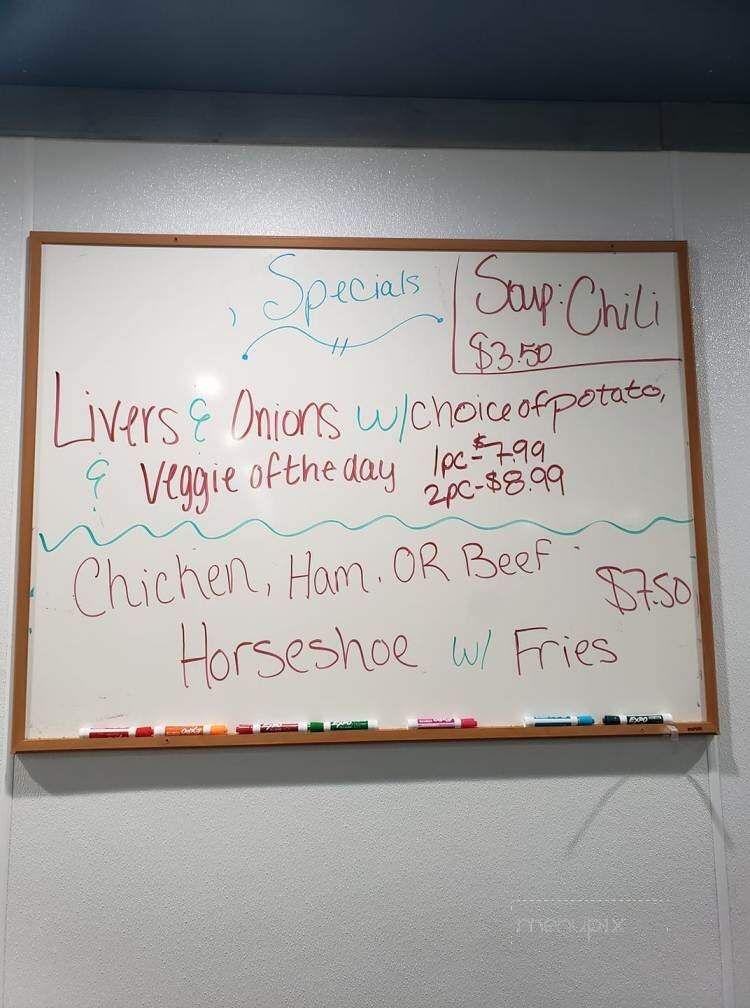 Specials
Soup: Chili
$3.50
Livers & Onions w/choice of potato,
& Veggie of the day
1pc-$7.99
2pc-$8.99
Chicken, Ham, OR Beef
$7.50
Horseshoe w/ Fries
EXPO
menupix